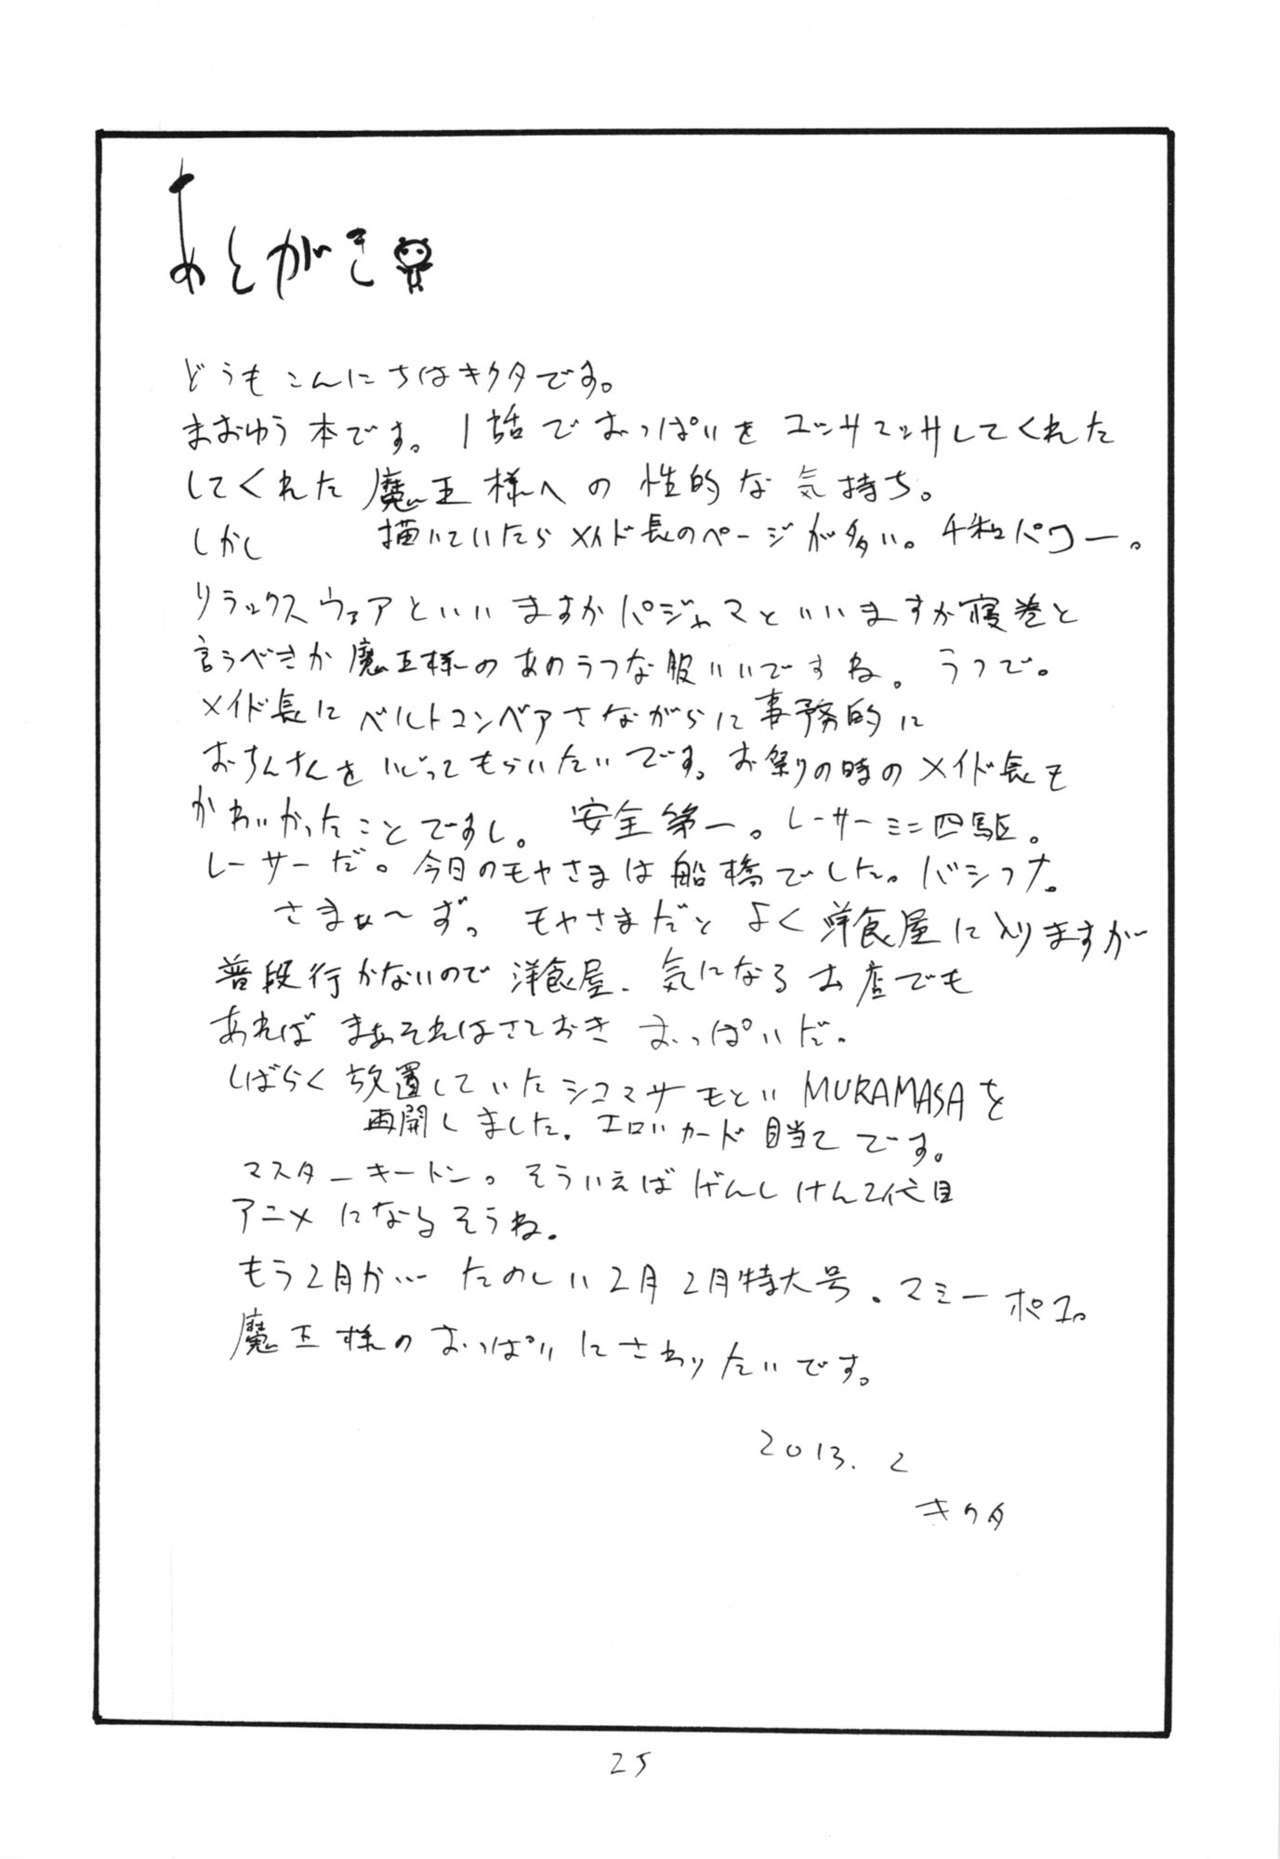 あとがき
どうもこんにちはキクタです。
まおゆう本です。1話でおっぱいをユッサユッサしてくれた
してくれた魔王様への性的な気持ち。
しかし 描いていたらメイド長のページが多い。千和パワー。
リラックスウェアといいますかパジャマといいますか寝巻と
言うべきか魔王様のあのうつな服いいですね。うつで。
メイド長にベルトコンベアさながらに事務的に
おちんちんをいじってもらいたいです。お祭りの時のメイド長も
かわいかったことですし。安全第一。レーサーミニ四駆。
レーサーだ。今日のモヤさまは船橋でした。バシフナ。
さまぁ〜ず。モヤさまだとよく洋食屋に入りますが
普段行かないので洋食屋、気になるお店でも
あれば まあそれはさておき おっぱいだ。
しばらく放置していたシコマサもといMURAMASAを
再開しました。エロいカード目当てです。
マスターキートン。そういえばげんしけん2代目
アニメになるそうね。
もう2月か… たのしい2月 2月特大号。マミーポコ。
魔王様のおっぱいにさわりたいです。
2013.2
キクタ
25